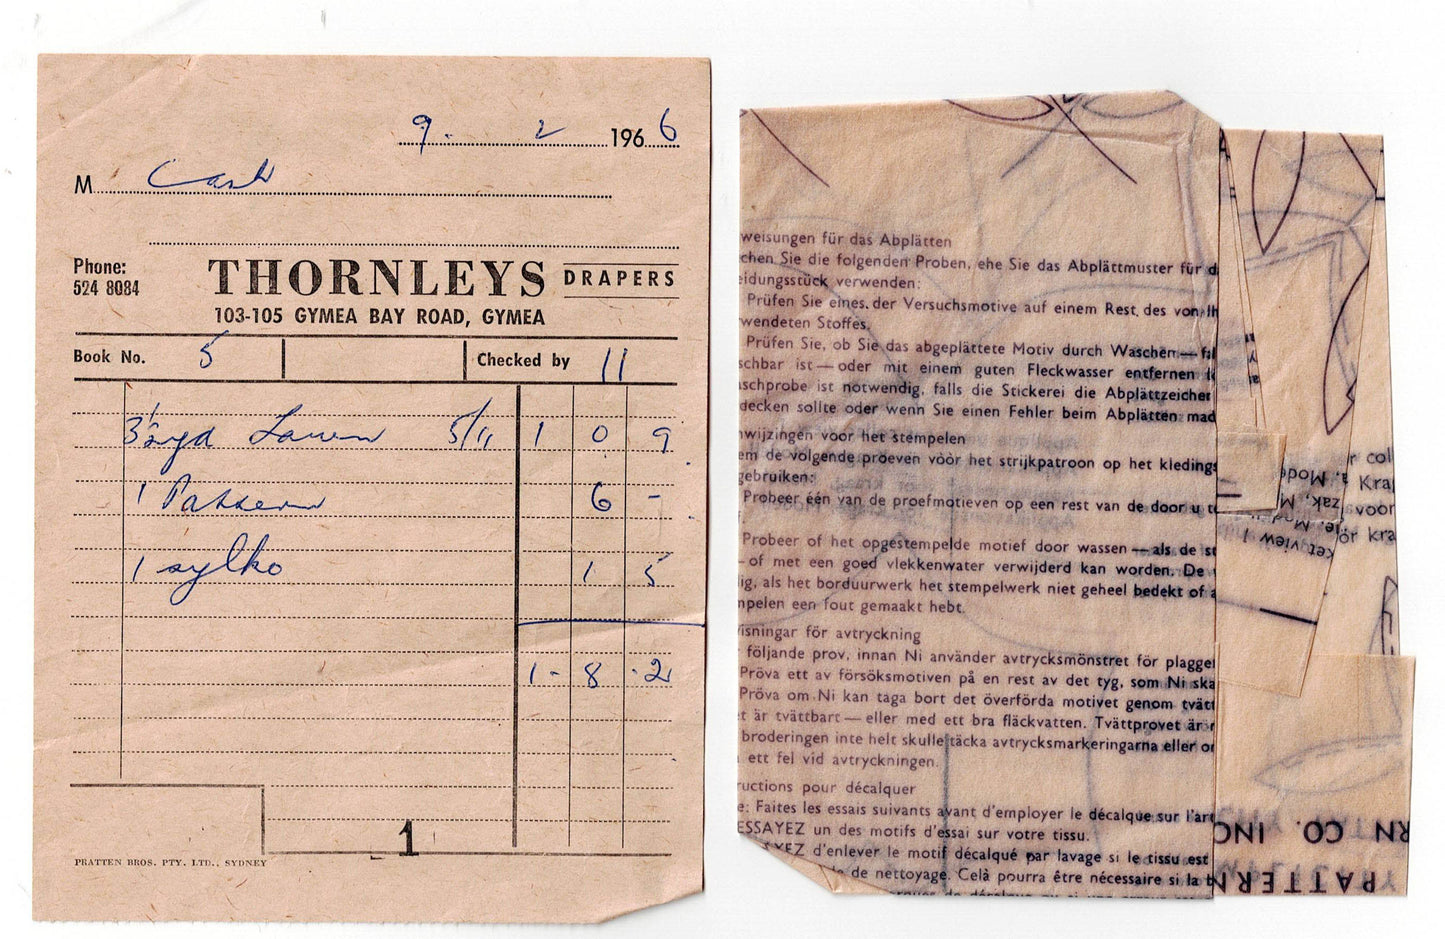 9. 2 1966
M Cash
Phone:
524 8084
THORNLEYS DRAPERS
103-105 GYMEA BAY ROAD, GYMEA
Book No. 5 Checked by 11
3½ yd 5/11 1 0 9
1 Pattern 6 -
1 sylko 1 5
1 - 8 - 2
1
PRATTEN BROS. PTY. LTD., SYDNEY
weisungen für das Abplätten
chen Sie die folgenden Proben, ehe Sie das Abplättmuster für d
eidungsstück verwenden:
Prüfen Sie eines der Versuchsmotive auf einem Rest des von Ih
wendeten Stoffes.
Prüfen Sie, ob Sie das abgeplättete Motiv durch Waschen — fal
schbar ist — oder mit einem guten Fleckwasser entfernen
schprobe ist notwendig, falls die Stickerei die Abplättzeicher
decken sollte oder wenn Sie einen Fehler beim Abplätten mad
wijzingen voor het stempelen
em de volgende proeven vòòr het strijkpatroon op het kledings
gebruiken:
Probeer één van de proefmotieven op een rest van de door u te
Probeer of het opgestempelde motief door wassen — als de st
— of met een goed vlekkenwater verwijderd kan worden. De
ig, als het borduurwerk het stempelwerk niet geheel bedekt of a
mpelen een fout gemaakt hebt.
isningar för avtryckning
följande prov, innan Ni använder avtrycksmönstret för plagget
Pröva ett av försöksmotiven på en rest av det tyg, som Ni ska
Pröva om Ni kan taga bort det överförda motivet genom tvätt
t är tvättbart — eller med ett bra fläckvatten. Tvättprovet är n
broderingen inte helt skulle täcka avtrycksmarkeringarna eller or
ett fel vid avtryckningen.
ructions pour décalquer
e: Faites les essais suivants avant d'employer le décalque sur l'art
ESSAYEZ un des motifs d'essai sur votre tissu.
SYEZ d'enlever le motif décalqué par lavage si le tissu est
de nettoyage. Celà pourra être nécessaire si la
r col
Kra
voor
ör kra
a, Mode
zak, M
ie, Mod
ket view I
RN CO. INC
PATTERN